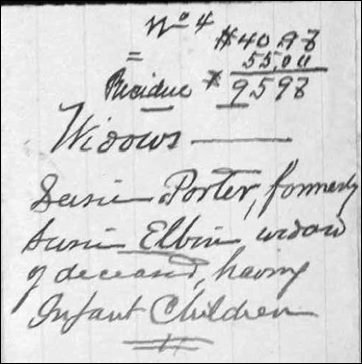 No 4
$40.98
= 55.00
Residue $ 95 98
Widows
Susie Porter, formerly
Susie Elbin widow
of deceased, having
Infant Children